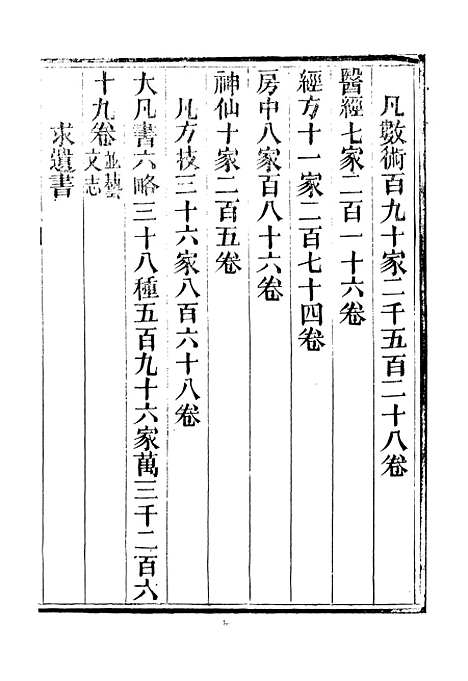 凡數術百九十家二千五百二十八卷
醫經七家二百一十六卷
經方十一家二百七十四卷
房中八家百八十六卷
神仙十家二百五卷
凡方技三十六家八百六十八卷
大凡書六略三十八種五百九十六家萬三千二百六
十九卷並藝文志
求遺書